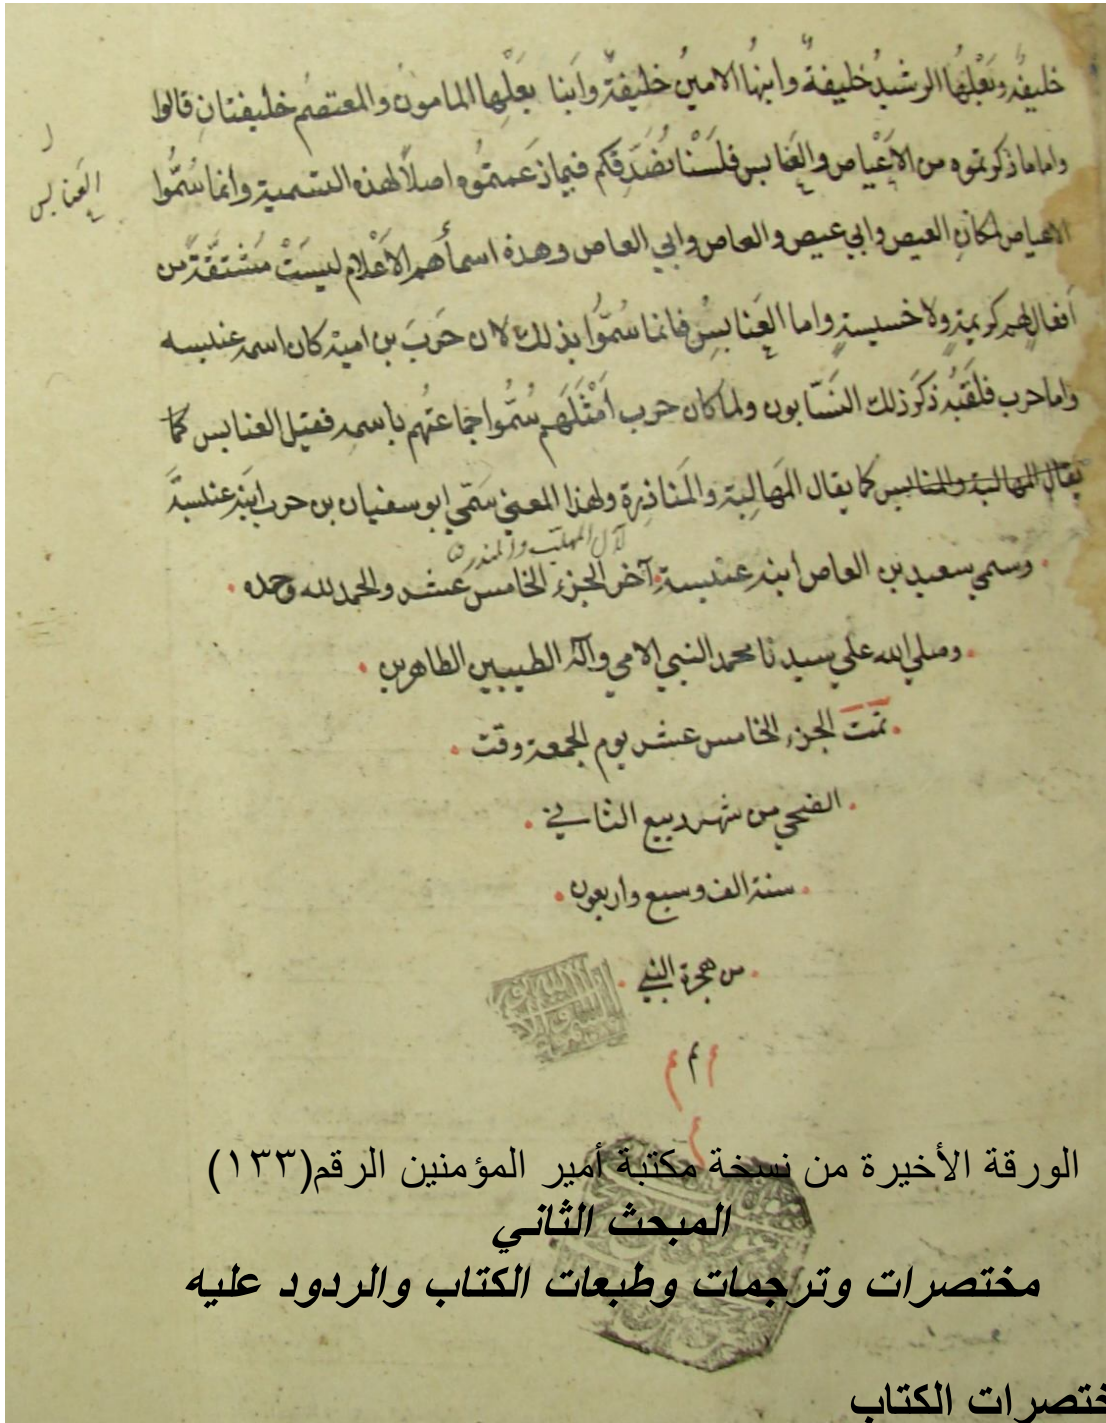 خليفةٌ وبَعْلها الرشيدُ خليفةٌ وابنها الامينُ خليفةٌ وابنا بَعْلِها المامون والمعتصم خليفتانِ قالوا
واما ما ذكرتموه من الاَعْياص والعَنابس فلَسْنا نُصَدّقكم فيما زعمتموه اصلاً لهذه التسمية وانما سُمُّوا
العنابس
الاعياص لمكان العيص وابي عيص والعاص وابي العاص وهذه اسماؤهم الاَعْلام ليسَتْ مشتقّة من
اَفعالٍ لهم كريمةٍ ولا خسيسةٍ واما العَنابِسُ فانما سُمُّوا بذلك لان حَربَ بن امية كان اسمه عنبسه
واما حرب فلَقَبُه ذَكَرَ ذلك النسّابون ولما كان حرب اَمْثَلَهم سُمُّوا جماعتهُم باسمه فقيل العنابس كما
يقال المهالبة والمنابس كما يقال المَهالِبة والمَناذِرة ولهذا المعنى سَمّي ابو سفيان بن حرب ابنَه عنبسةَ
لآل المهلب والمنذر
وسمي سعيد بن العاص ابنه عنبسة آخر الجزء الخامس عشر والحمد لله وحده
وصلي الله علي سيدنا محمد النبي الامي وآله الطيبين الطاهرين
تمت الجزء الخامس عشر يوم الجمعة وقت
الضحي من شهر ربيع الثاني
سنة الف وسبع واربعون
من هجرة النبي
الورقة الأخيرة من نسخة مكتبة أمير المؤمنين الرقم(١٣٣)
المبحث الثاني
مختصرات وترجمات وطبعات الكتاب والردود عليه
ختصرات الكتاب